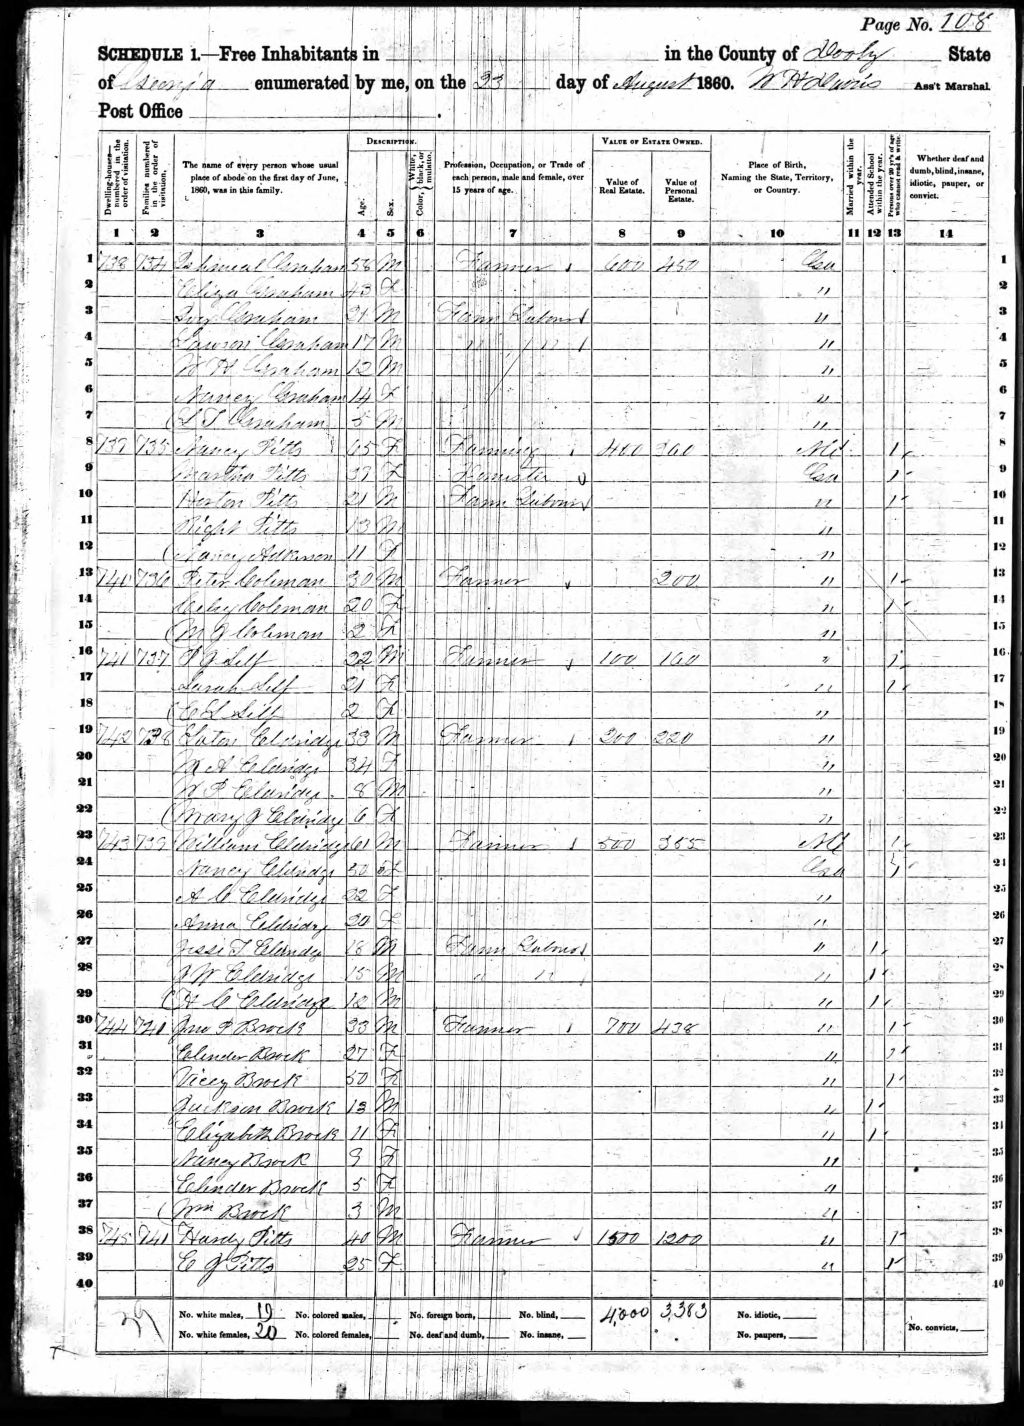 Page No. 108
SCHEDULE 1.—Free Inhabitants in in the County of Dooly State
of Georgia enumerated by me, on the 23 day of August 1860. W H Davis Ass't Marshal.
Post Office .
Dwelling-houses— numbered in the order of visitation.
Families numbered in the order of visitation.
The name of every person whose usual place of abode on the first day of June, 1860, was in this family.
DESCRIPTION.
Age.
Sex.
Color, White, black, or mulatto.
Profession, Occupation, or Trade of each person, male and female, over 15 years of age.
VALUE OF ESTATE OWNED.
Value of Real Estate.
Value of Personal Estate.
Place of Birth, Naming the State, Territory, or Country.
Married within the year.
Attended School within the year.
Persons over 20 y'rs of age who cannot read & write.
Whether deaf and dumb, blind, insane, idiotic, pauper, or convict.
1 2 3 4 5 6 7 8 9 10 11 12 13 14
1 738 734 Graham 58 M Farmer 600 450 Geo 1
2 Eliza Graham 43 F " 2
3 Graham 21 M Farm Labour " 3
4 Graham 17 M " " " 4
5 W H Graham 12 M " 5
6 Nancy Graham 14 F " 6
7 Graham 5 M " 7
8 735 Nancy Pitts 65 F Farming 400 360 Md 1 8
9 Martha Pitts 37 F Geo 1 9
10 Pitts 21 M Farm Labour " 1 10
11 Right Pitts 13 M " 11
12 Nancy Adkinson 11 F " 12
13 740 736 Peter Coleman 30 M Farmer 200 " 1 13
14 Coleman 20 F " 1 14
15 M J Coleman 2 F " 15
16 741 737 Self 22 M Farmer 100 160 " 1 16
17 Sarah Self 21 F " 1 17
18 Self 2 F " 18
19 742 738 Eldridge 33 M Farmer 200 220 " 19
20 M A Eldridge 34 F " 20
21 W P Eldridge 8 M " 21
22 Mary J Eldridge 6 F " 22
23 743 739 William Eldridge 61 M Farmer 500 355 Md 1 23
24 Nancy Eldridge 50 F Geo 1 24
25 A C Eldridge 22 F " 25
26 Anna Eldridge 20 F " 26
27 Jesse T Eldridge 18 M Farm Labour " 1 27
28 J W Eldridge 15 M " " " 1 28
29 H C Eldridge 12 M " 1 29
30 744 740 Jno P Brock 33 M Farmer 700 438 " 1 30
31 Clender Brock 27 F " 1 31
32 Vicey Brock 50 F " 1 32
33 Jackson Brock 13 M " 1 33
34 Elizabeth Brock 11 F " 1 34
35 Nancy Brock 9 F " 35
36 Clender Brock 5 F " 36
37 Wm Brock 3 M " 37
38 745 741 Hardy Pitts 40 M Farmer 1500 1200 " 1 38
39 E J Pitts 25 F " 1 39
40 40
39
No. white males, 19 No. colored males, No. foreign born, No. blind, 4,000 3,383 No. idiotic,
No. white females, 20 No. colored females, No. deaf and dumb, No. insane, No. paupers, No. convicts,